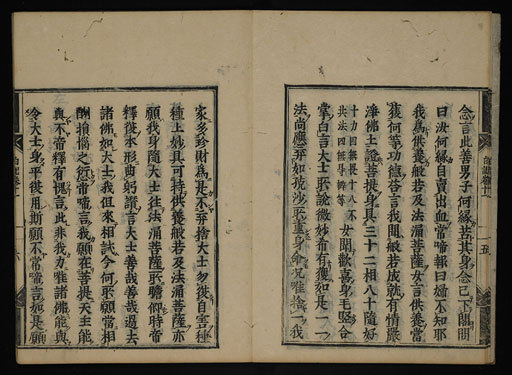 念言此善男子何縁苦其身念已下閣問
曰汝何縁自賣出血常啼報曰姉不知耶
我爲供養般若及法涌菩薩女言供養當
獲何等功德答言我聞般若成就有情嚴
淨佛土證菩提身具三十二相八十隨好
十力四無畏十八不
共法四無导解等
女聞歡喜身毛竪合
掌白言大士所說微妙希有獲如是一一
法尚應弃如殑沙所重身命況唯捨一我
家多珎財爲是不弃捨大士勿從自害種
種上妙具可持供養般若及法涌菩薩亦
願我身隨大士往法涌菩薩所瞻仰時帝
釋從本形曲躬讚言大士善哉善哉過去
諸佛如大士我但來相試今何所願當相
酬損惱之
常啼言我願在菩提天主能
與不帝釋有慙言此非我力唯諸佛能與
令大士身平復用斯願不常啼言如是願
五
六